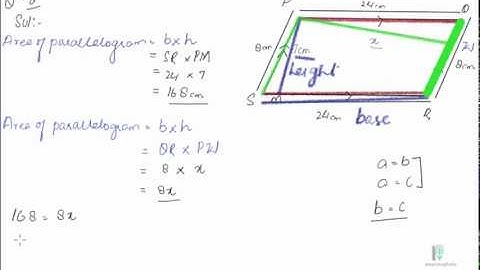 Sol:-
Area of parallelogram = b x h
= SR x PM
= 24 x 7
= 168cm
Area of parallelogram = b x h
= QR x PN
= 8 x x
= 8x
168 = 8x
P
24cm
Q
8cm
7cm
x
N
8cm
height
S
M
24cm
R
base
a = b
a = c
b = c